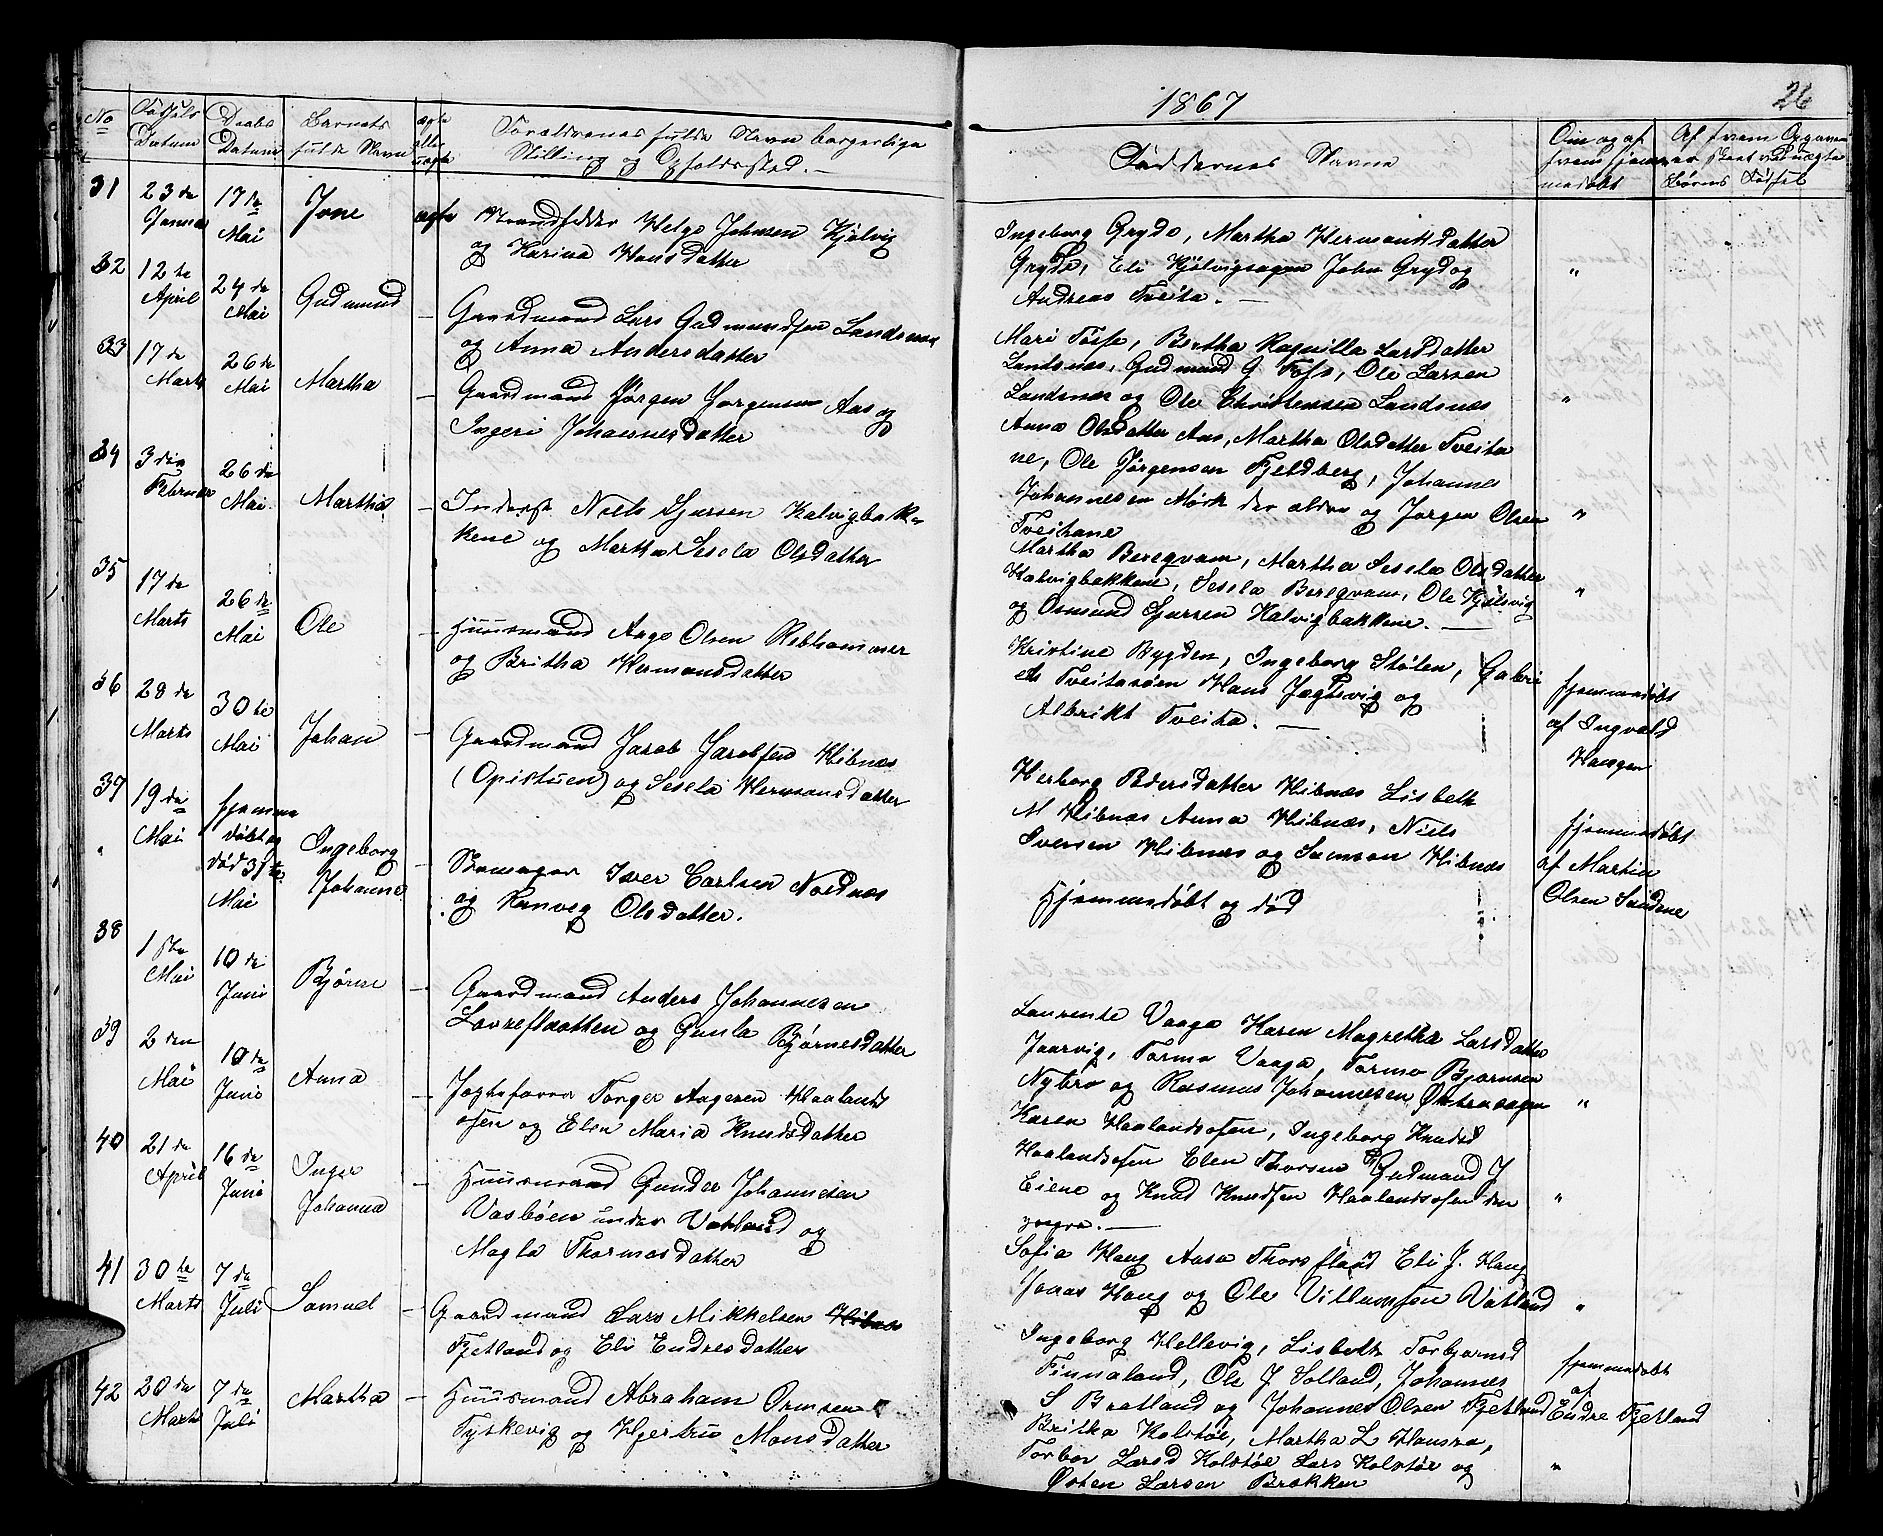 1867
26
No
Fødsels Datum
Daabs Datum
Barnets fulde Navn
ægte eller uægte
Forældrenes fulde Navn borgerlige
Stilling og Opholdssted. –
Faddernes Navne
Om og af hvem hjemmedøbt
31
23de Januar
17de Mai
Jone
ægte
Helge Johnsen Kjølvig
og Karina Hansdatter
Ingeborg Gryde, Martha Hermansdatter
Gryde, Eli Kjølvigsagen John Gryde og
Andreas Tveita. –
"
32
12te April
24de Mai
Gudmund
–
Gaardmand Lars Gudmundsen Landsnæs
og Anna Andersdatter
Mari Fosse, Bertha Ragnilla Larsdatter
Landsnæs, Gudmund G. Foss, Ole Larsen
Landsnæs og Ole Christensen Landsnæs
"
33
17de Marts
26de Mai
Martha
–
Gaardmand Jørgen Jørgensen Aas og
Ingeri Johannesdatter
Anna Olsdatter Aas, Martha Olsdatter Tveita
ne, Ole Jørgensen Fjeldberg, Johannes
Johannesen Mørk den ældre og Jørgen Olsen
Tveitane
"
34
3die Februar
26de Mai
Martha
–
Inderst Niels Sjursen Kalvigbak-
kene og Martha Sesela Olsdatter
Martha Beregvam, Martha Sesela Olsdatter
Kalvigbakkene, Sesela Beregvam, Ole Kjølsvig
og Osmund Sjursen Kalvigbakkene. –
"
35
17de Marts
26de Mai
Ole
–
Huusmand Aage Olsen Rebhammer
og Britha Hermansdatter
Kristine Bygden, Ingeborg Støten, Gabri
els Tveitasøen Hans Jegtevig og
Albrikt Tveita. –
hjemmedøbt
af Ingvald
Haugen
36
28de Marts
30te Mai
Johan
–
Gaardmand Jacob Jacobsen Hibnæs
(Opistuen) og Sesela Hermansdatter
Herborg Bdersdatter Hibnæs Lisbeth
M Hibnæs Anna Hibnæs, Niels
Iversen Hibnæs og Samson Hibnæs
hjemmedøbt
af Martin
Olsen Sandene
37
"
19de Mai
hjemme
døbt og
død 31te
Mai
Ingeborg
Johanne
–
Iver Carlsen Nordnæs
og Ranveg Olsdatter.
Hjemmedøbt og død
38
1ste Mai
10de Juni
Bjørne
–
Gaardmand Anders Johannesen
Lovrefladtten og Gunla Bjørnesdatter
Laurente Vaage Karen Magretha Larsdatter
Jaarvig, Tormo Vaaga, Tormo Bjørnsen
Nybro og Rasmus Johannesen Østravaagen
"
39
2den Mai
10de Juni
Anna
–
Jægtefører Torger Aagesen Haalands
osen og Elen Maria Knudsdatter
Karen Haalandsosen, Ingeborg Knudsd
Haalandsosen Elen Thorsen Gudmund J
Eiene og Knud Knudsen Haalandsosen den
yngre. –
"
40
21de April
16de Juni
Inger
Johanna
–
Huusmand Gunder Johannesen
Vasbøen under Vatland og
Magla Thormasdatter
Sofia Haug Aasa Thorsfland Eli J. Haug
Jonas Haug og Ole Villumsen Vatland
"
41
30te Marts
7de Juli
Samuel
–
Gaardmand Lars Mikkelsen Hibnæs
Fjetland og Eli Endresdatter
Ingeborg Hellevig, Lisbeth Torbjørnsd
Finnaland, Ole J Solland, Johannes
S Bratland og Johannes Olsen Fjetland
hjemmedøbt
af
Endre Fjetland
42
20de Marts
7de Juli
Martha
–
Huusmand Abraham Ormsen
Tyskevig og Hjertrü Monsdatter
Britha Kolstøe, Martha L Hausra,
Torber Larsd Kolstøe Lars Kolstøe og
Østen Larsen Brekken
"